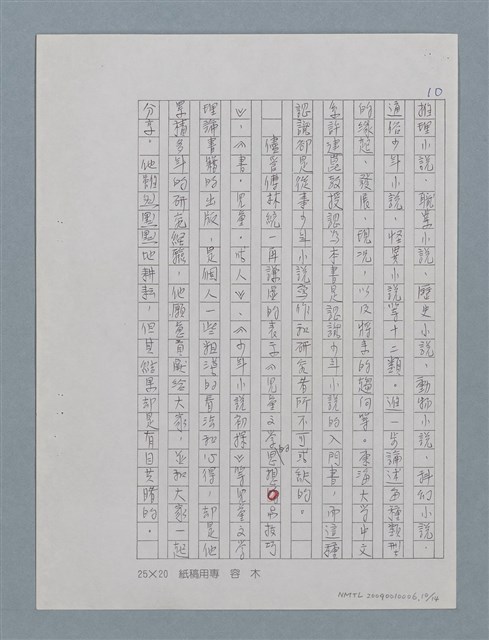 10
推理小說、職業小說、歷史小說、動物小說、科幻小說、
通俗少年小說、怪異小說等十二類。進一步論述各種類型
的緣起、發展、現況,以及將來的趨向等。東海大學中文
系許建崑教授認為本書是認識少年小說的入門書,而這種
認識卻是從事少年小說寫作和研究者所不可或缺的。
儘管傅林統一再謙虛的表示《兒童文學的思想與技巧
》、《書.兒童.成人》、《少年小說初探》等兒童文學
理論書籍的出版,是個人一些粗淺的看法和心得,卻是他
累積多年的研究經驗,他願意貢獻給大家,並和大家一起
分享。他雖然默默地耕耘,但其結果卻是有目共睹的。
25×20 紙稿用專 容 木
NMTL 20090010006_10/14